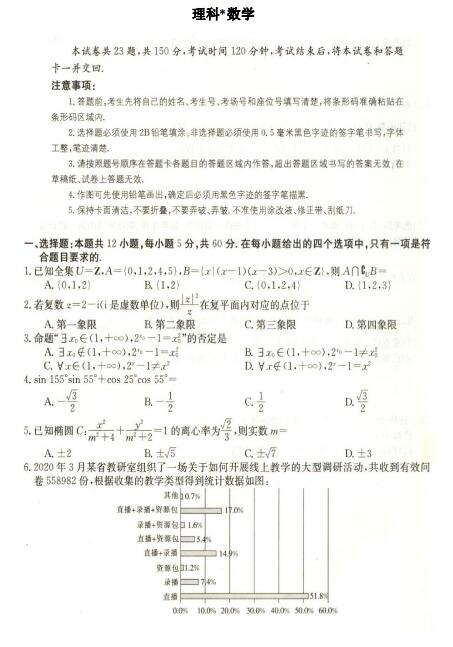 理科*数学
本试卷共 23 题,共 150 分,考试时间 120 分钟,考试结束后,将本试卷和答题
卡一并交回.
注意事项:
1.答题前,考生先将自己的姓名、考生号、考场号和座位号填写清楚,将条形码准确粘贴在
条形码区域内.
2.选择题必须使用 2B 铅笔填涂;非选择题必须使用 0.5 毫米黑色字迹的签字笔书写,字体
工整,笔迹清楚.
3.请按照题号顺序在答题卡各题目的答题区域内作答,超出答题区域书写的答案无效;在
草稿纸、试卷上答题无效.
4.作图可先使用铅笔画出,确定后必须用黑色字迹的签字笔描黑.
5.保持卡面清洁,不要折叠,不要弄破、弄皱.不准使用涂改液、修正带、刮纸刀.
一、选择题:本题共 12 小题,每小题 5 分,共 60 分.在每小题给出的四个选项中,只有一项是符
合题目要求的.
1.已知全集U=Z,A={0,1,2,4,5},B={x|(x-1)(x-3)>0,x∈Z},则 A∩∁UB=
A.{0,1,2} B.{1,2} C.{0,1,2,4} D.{1,2,3}
2.若复数 z=2-i(i 是虚数单位),则|z|²/z在复平面内对应的点位于
A.第一象限 B.第二象限 C.第三象限 D.第四象限
3.命题“∃x₀∈(1,+∞),2^x₀-1=x₀²”的否定是
A.∃x₀∉(1,+∞),2^x₀-1=x₀² B.∃x₀∈(1,+∞),2^x₀-1≠x₀²
C.∀x∈(1,+∞),2^x-1≠x² D.∀x∉(1,+∞),2^x-1=x²
4.sin 155°sin 55°+cos 25°cos 55°=
A.-√3/2 B.-1/2 C.1/2 D.√3/2
5.已知椭圆 C:x²/(m²+4)+y²/(m²+2)=1 的离心率为√2/3,则实数 m=
A.±2 B.±√5 C.±√7 D.±3
6.2020 年 3 月某省教研室组织了一场关于如何开展线上教学的大型调研活动,共收到有效问
卷 558982 份,根据收集的教学类型得到统计数据如图:
其他 0.7%
直播+录播+资源包 17.0%
录播+资源包 1.6%
直播+资源包 5.4%
直播+录播 14.9%
资源包 1.2%
录播 7.4%
直播 51.8%
0.0% 10.0% 20.0% 30.0% 40.0% 50.0% 60.0%